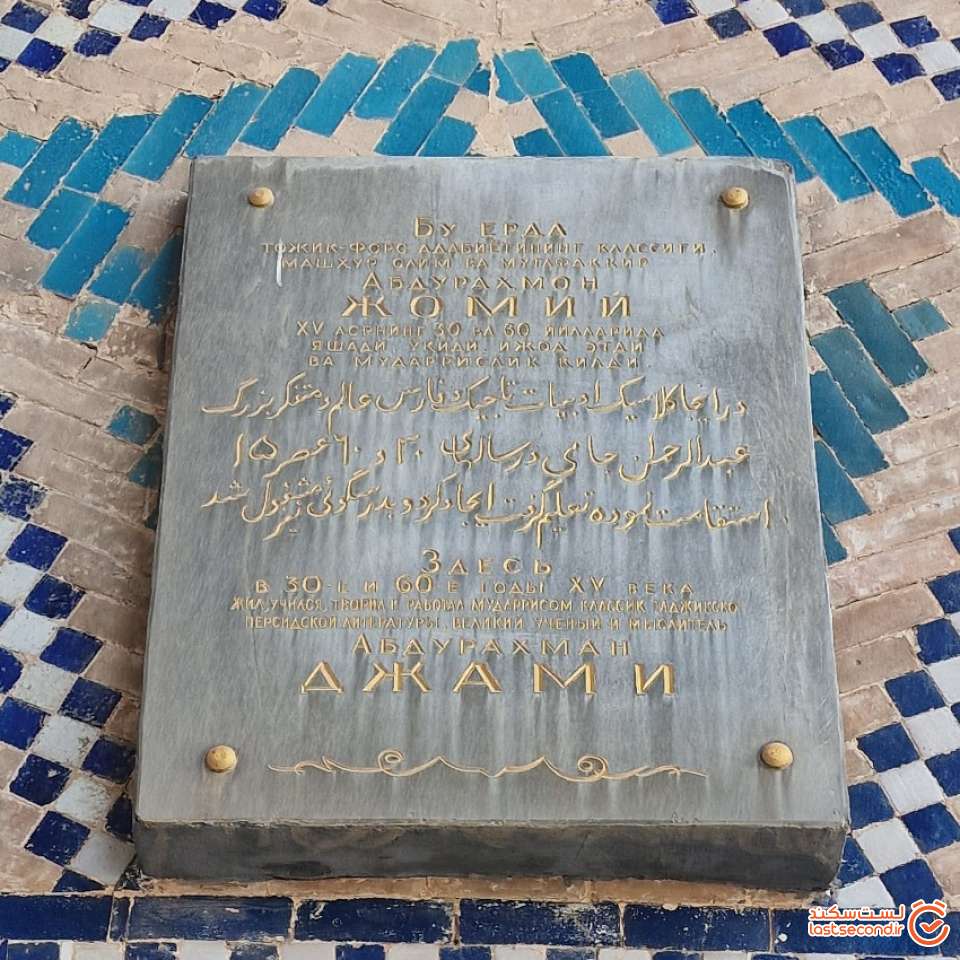 Бу ерда
тожик-форс адабиётининг классиги,
машҳур олим ва мутафаккир
Абдурахмон
ЖОМИЙ
XV асрнинг 30 ва 60 йилларида
яшади, ўқиди, ижод этди
ва мударрислик қилди.
در اینجا کلاسیک ادبیات تاجیک و فارس عالم و متفکر بزرگ
عبدالرحمن جامی در سالهای ۳۰ و ۶۰ عصر ۱۵
استقامت نموده تعلیم گرفت ایجاد کرد و بدرسگوئی نیز مشغول شد
Здесь
в 30-е и 60-е годы XV века
жил, учился, творил и работал мударрисом классик таджикско-
персидской литературы, великий ученый и мыслитель
Абдурахман
ДЖАМИ
لست‌سکند
lastsecond.ir